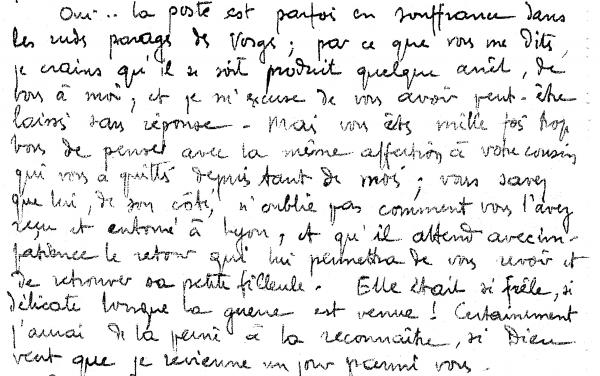 Oui.. la poste est parfois en souffrance dans
les rudes parages des Vosges ; par ce que vous me dites,
je crains qu'il se soit produit quelque arrêt, de
vous à moi, et je m'excuse de vous avoir peut-être
laissé sans réponse - Mais vous êtes mille fois trop
bons de penser avec la même affection à votre cousin
qui vous a quittés depuis tant de mois ; vous savez
que lui, de son côté, n'oublie pas comment vous l'avez
reçu et entouré à Lyon, et qu'il attend avec im-
patience le retour qui lui permettra de vous revoir et
de retrouver sa petite filleule. Elle était si frêle, si
délicate lorsque la guerre est venue ! Certainement
j'aurai de la peine à la reconnaître, si Dieu
veut que je revienne un jour parmi vous.